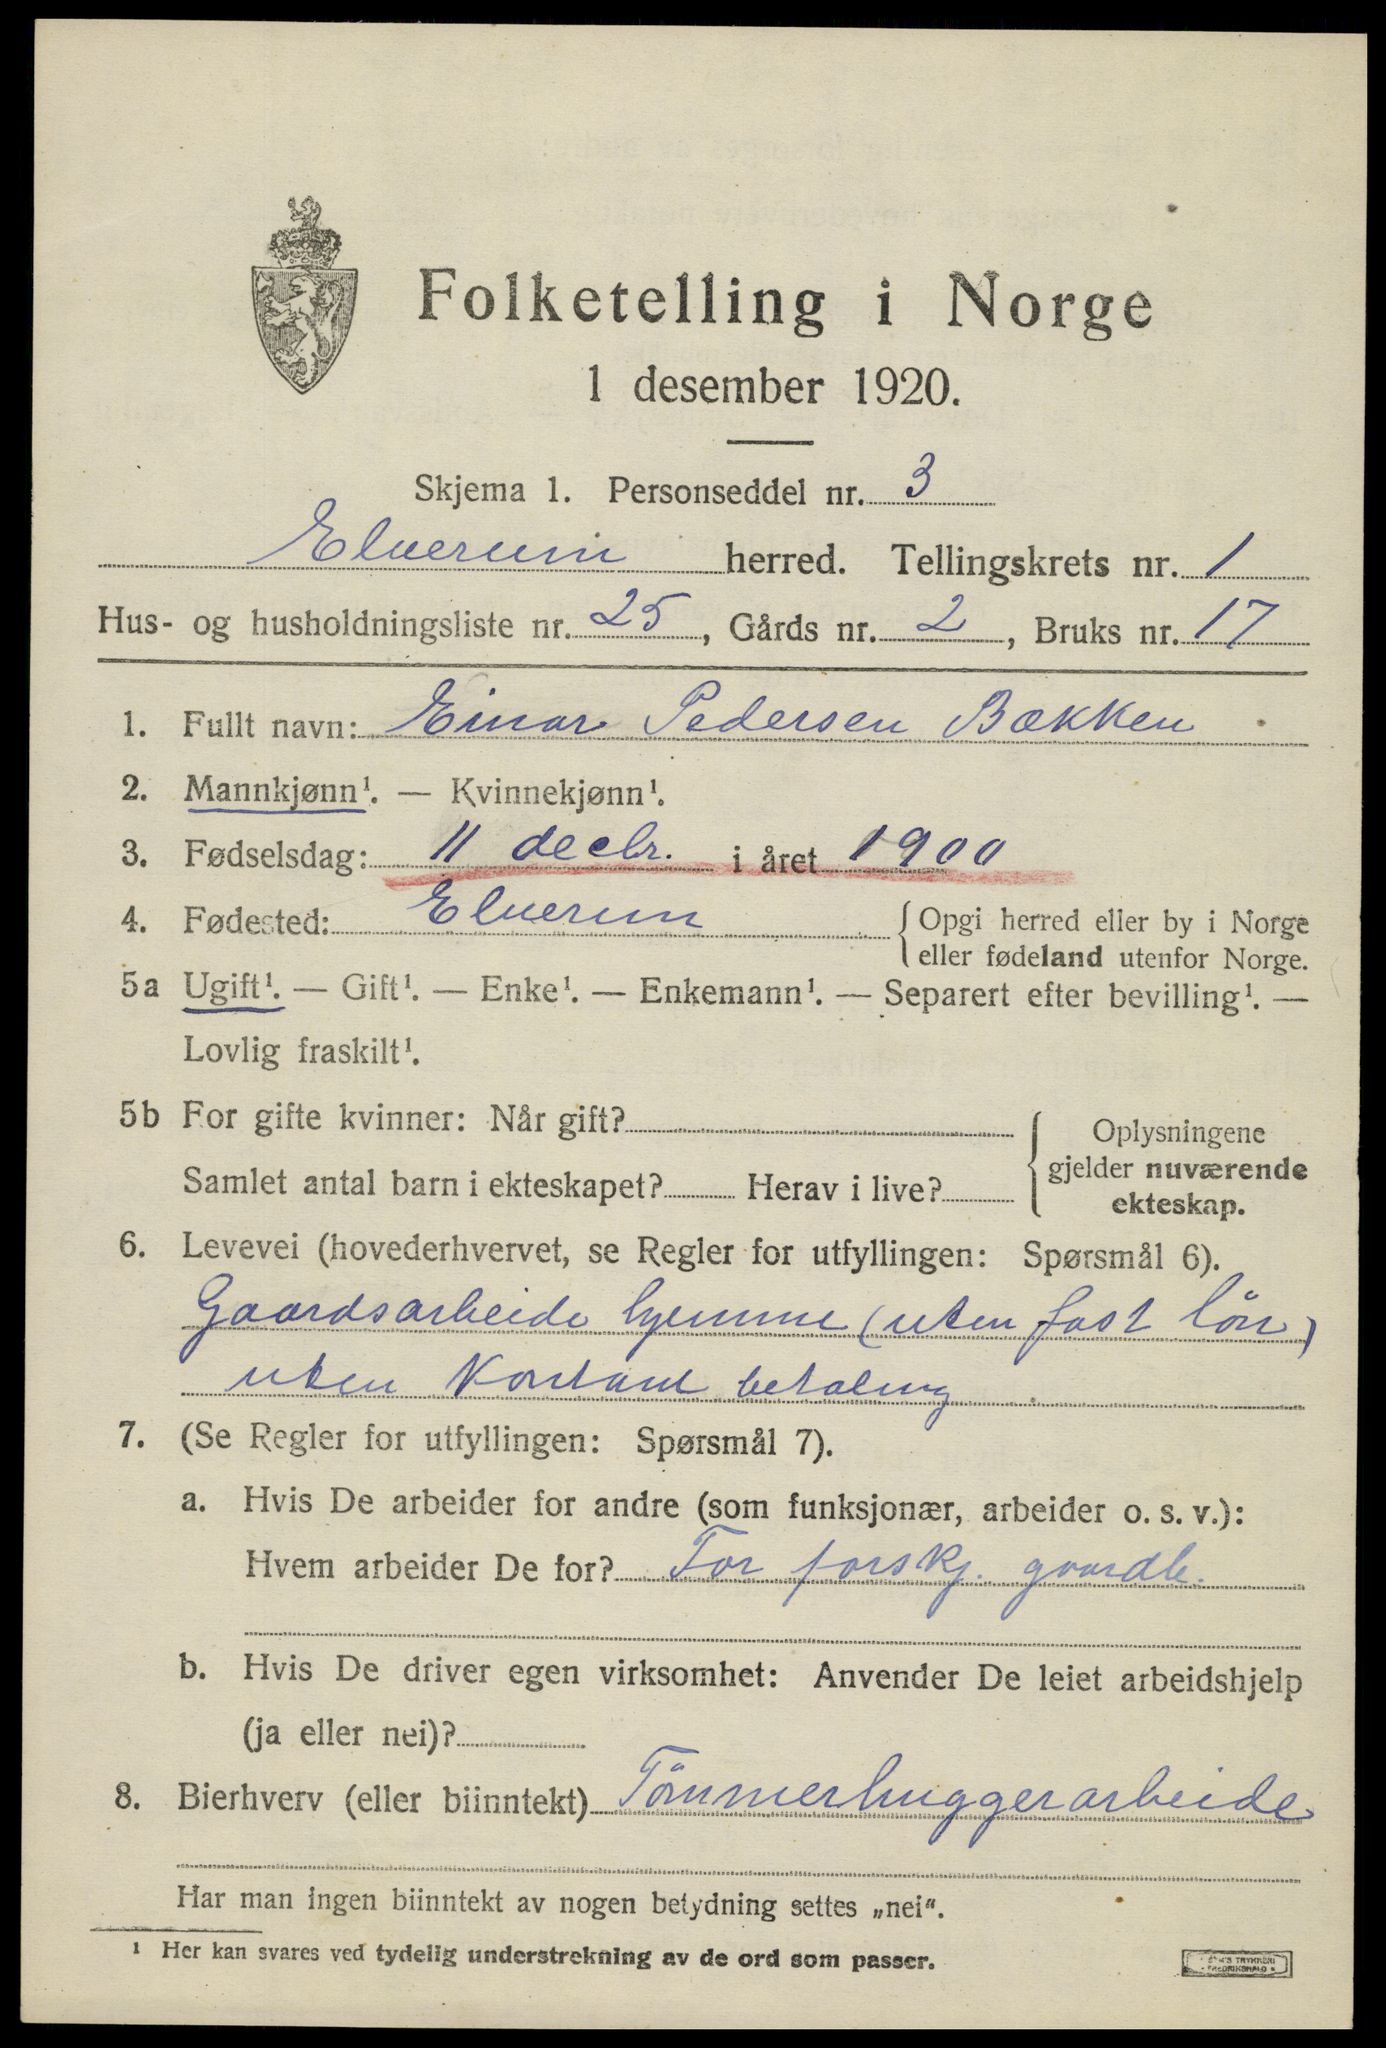 Folketelling i Norge
1 desember 1920.
Skjema 1. Personseddel nr. 3
Elverum herred. Tellingskrets nr. 1
Hus- og husholdningsliste nr. 25, Gårds nr. 2, Bruks nr. 17
1. Fullt navn: Einar Pedersen Bækken
2. Mannkjønn¹. — Kvinnekjønn¹.
3. Fødselsdag: 11 decbr. i året 1900
4. Fødested: Elverum { Opgi herred eller by i Norge
eller fødeland utenfor Norge.
5a Ugift¹. — Gift¹. — Enke¹. — Enkemann¹. — Separert efter bevilling¹. —
Lovlig fraskilt¹.
5b For gifte kvinner: Når gift? { Oplysningene
gjelder nuværende
Samlet antal barn i ekteskapet? Herav i live?
ekteskap.
6. Levevei (hovederhvervet, se Regler for utfyllingen: Spørsmål 6).
Gaardsarbeide hjemme (uten fast lön)
uten Kontant betaling
7. (Se Regler for utfyllingen: Spørsmål 7).
a. Hvis De arbeider for andre (som funksjonær, arbeider o. s. v.):
Hvem arbeider De for? For forskj. gaardb.
b. Hvis De driver egen virksomhet: Anvender De leiet arbeidshjelp
(ja eller nei)?
8. Bierhverv (eller biinntekt) Tömmerhuggerarbeide
Har man ingen biinntekt av nogen betydning settes „nei“.
¹ Her kan svares ved tydelig understrekning av de ord som passer.
TRYKKERI
FREDRIKSHALD